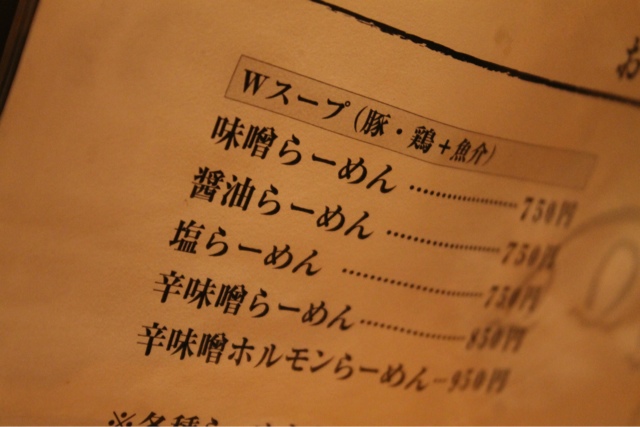 お
Wスープ(豚・鶏+魚介)
味噌らーめん …………………750円
醤油らーめん …………………750円
塩らーめん …………………750円
辛味噌らーめん………………850円
辛味噌ホルモンらーめん…950円
※各種らーめん